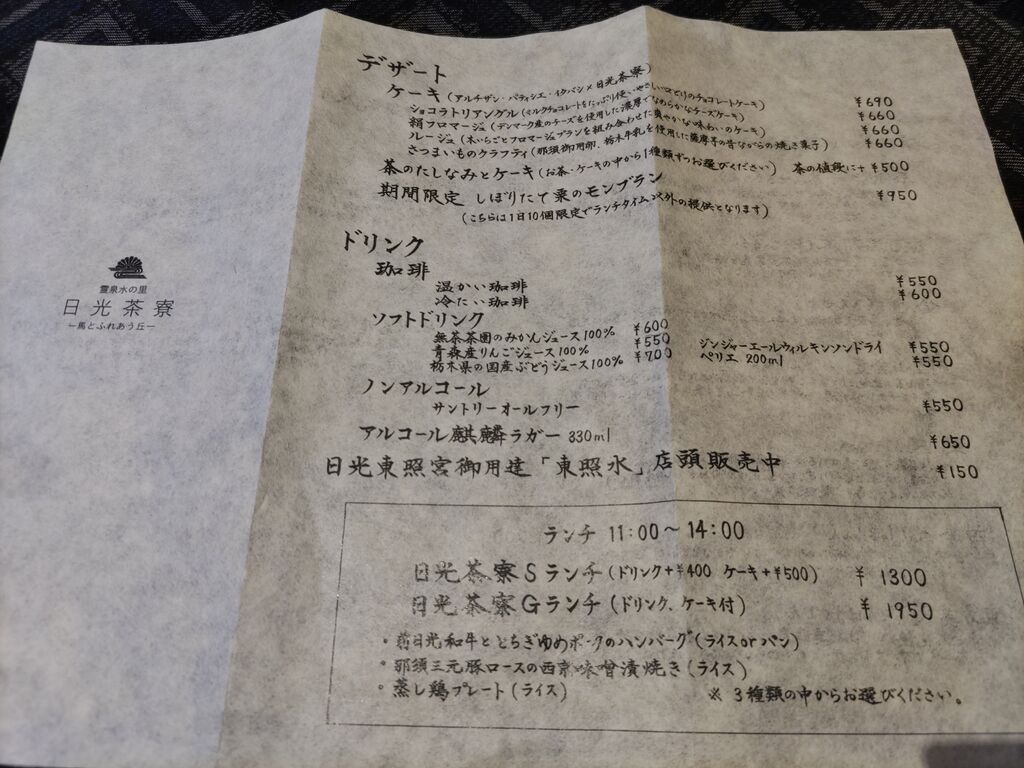 霊泉水の里
日光茶寮
ー馬とふれあう丘ー
デザート
ケーキ(アルチザン・パティシエ・イタバシ×日光茶寮)
ショコラトリアングル(ミルクチョコレートをたっぷり使いやさしい口どりのチョコレートケーキ) ¥690
絹フロマージュ(デンマーク産のチーズを使用した濃厚でなめらかなチーズケーキ) ¥660
ルージュ(木いちごとフロマージュブランを組み合わせた爽やかな味わいのケーキ) ¥660
さつまいものクラフティ(那須御用卵、栃木牛乳を使用した薩摩芋の昔ながらの焼き菓子) ¥660
茶のたしなみとケーキ(お茶・ケーキの中から1種類ずつお選びください) 茶の値段に+¥500
期間限定 しぼりたて栗のモンブラン ¥950
(こちらは1日10個限定でランチタイム以外の提供となります)
ドリンク
珈琲
温かい珈琲 ¥550
冷たい珈琲 ¥600
ソフトドリンク
無茶茶園のみかんジュース100% ¥600
青森産りんごジュース100% ¥550
栃木県の国産ぶどうジュース100% ¥700
ジンジャーエールウィルキンソンドライ ¥550
ペリエ 200ml ¥550
ノンアルコール
サントリーオールフリー ¥550
アルコール麒麟ラガー 330ml ¥650
日光東照宮御用達「東照水」店頭販売中 ¥150
ランチ 11:00~14:00
日光茶寮Sランチ(ドリンク+¥400 ケーキ+¥500) ¥ 1300
日光茶寮Gランチ(ドリンク、ケーキ付) ¥ 1950
・前日光和牛ととちぎゆめポークのハンバーグ(ライスorパン)
・那須三元豚ロースの西京味噌漬焼き(ライス)
・蒸し鶏プレート(ライス)
※ 3種類の中からお選びください。